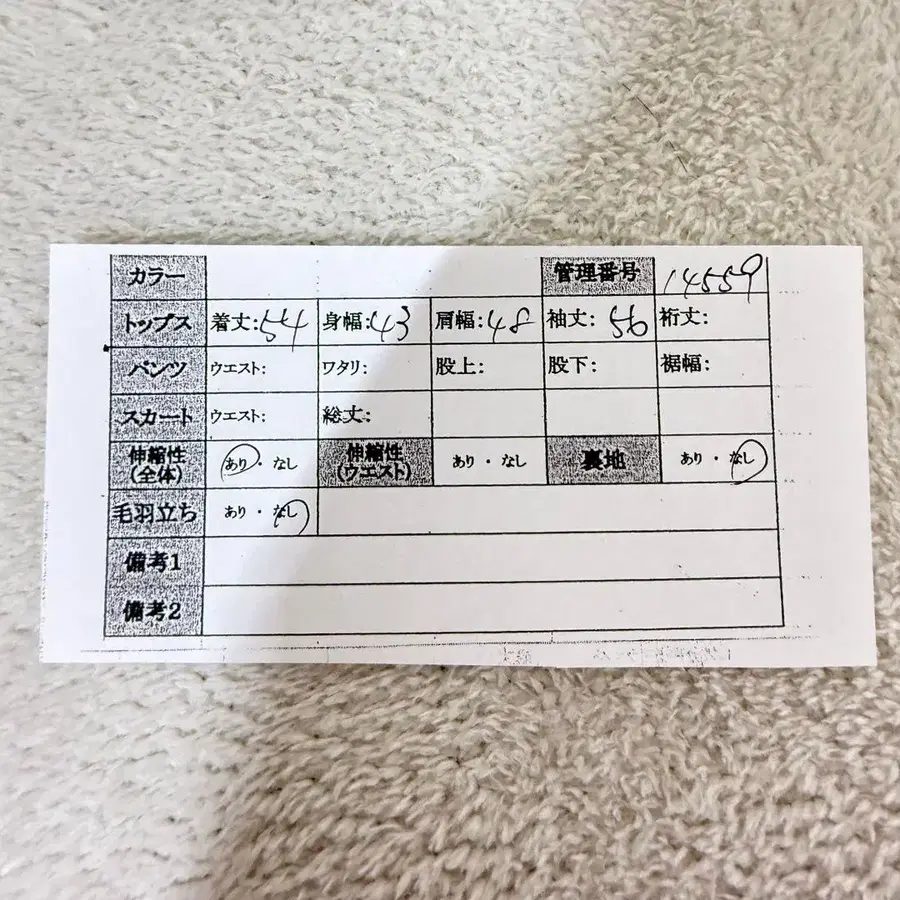 カラー 管理番号 14559
トップス 着丈:54 身幅:43 肩幅:48 袖丈:56 裄丈:
パンツ ウエスト: ワタリ: 股上: 股下: 裾幅:
スカート ウエスト: 総丈:
伸縮性(全体) あり・なし 伸縮性(ウエスト) あり・なし 裏地 あり・なし
毛羽立ち あり・なし
備考1
備考2